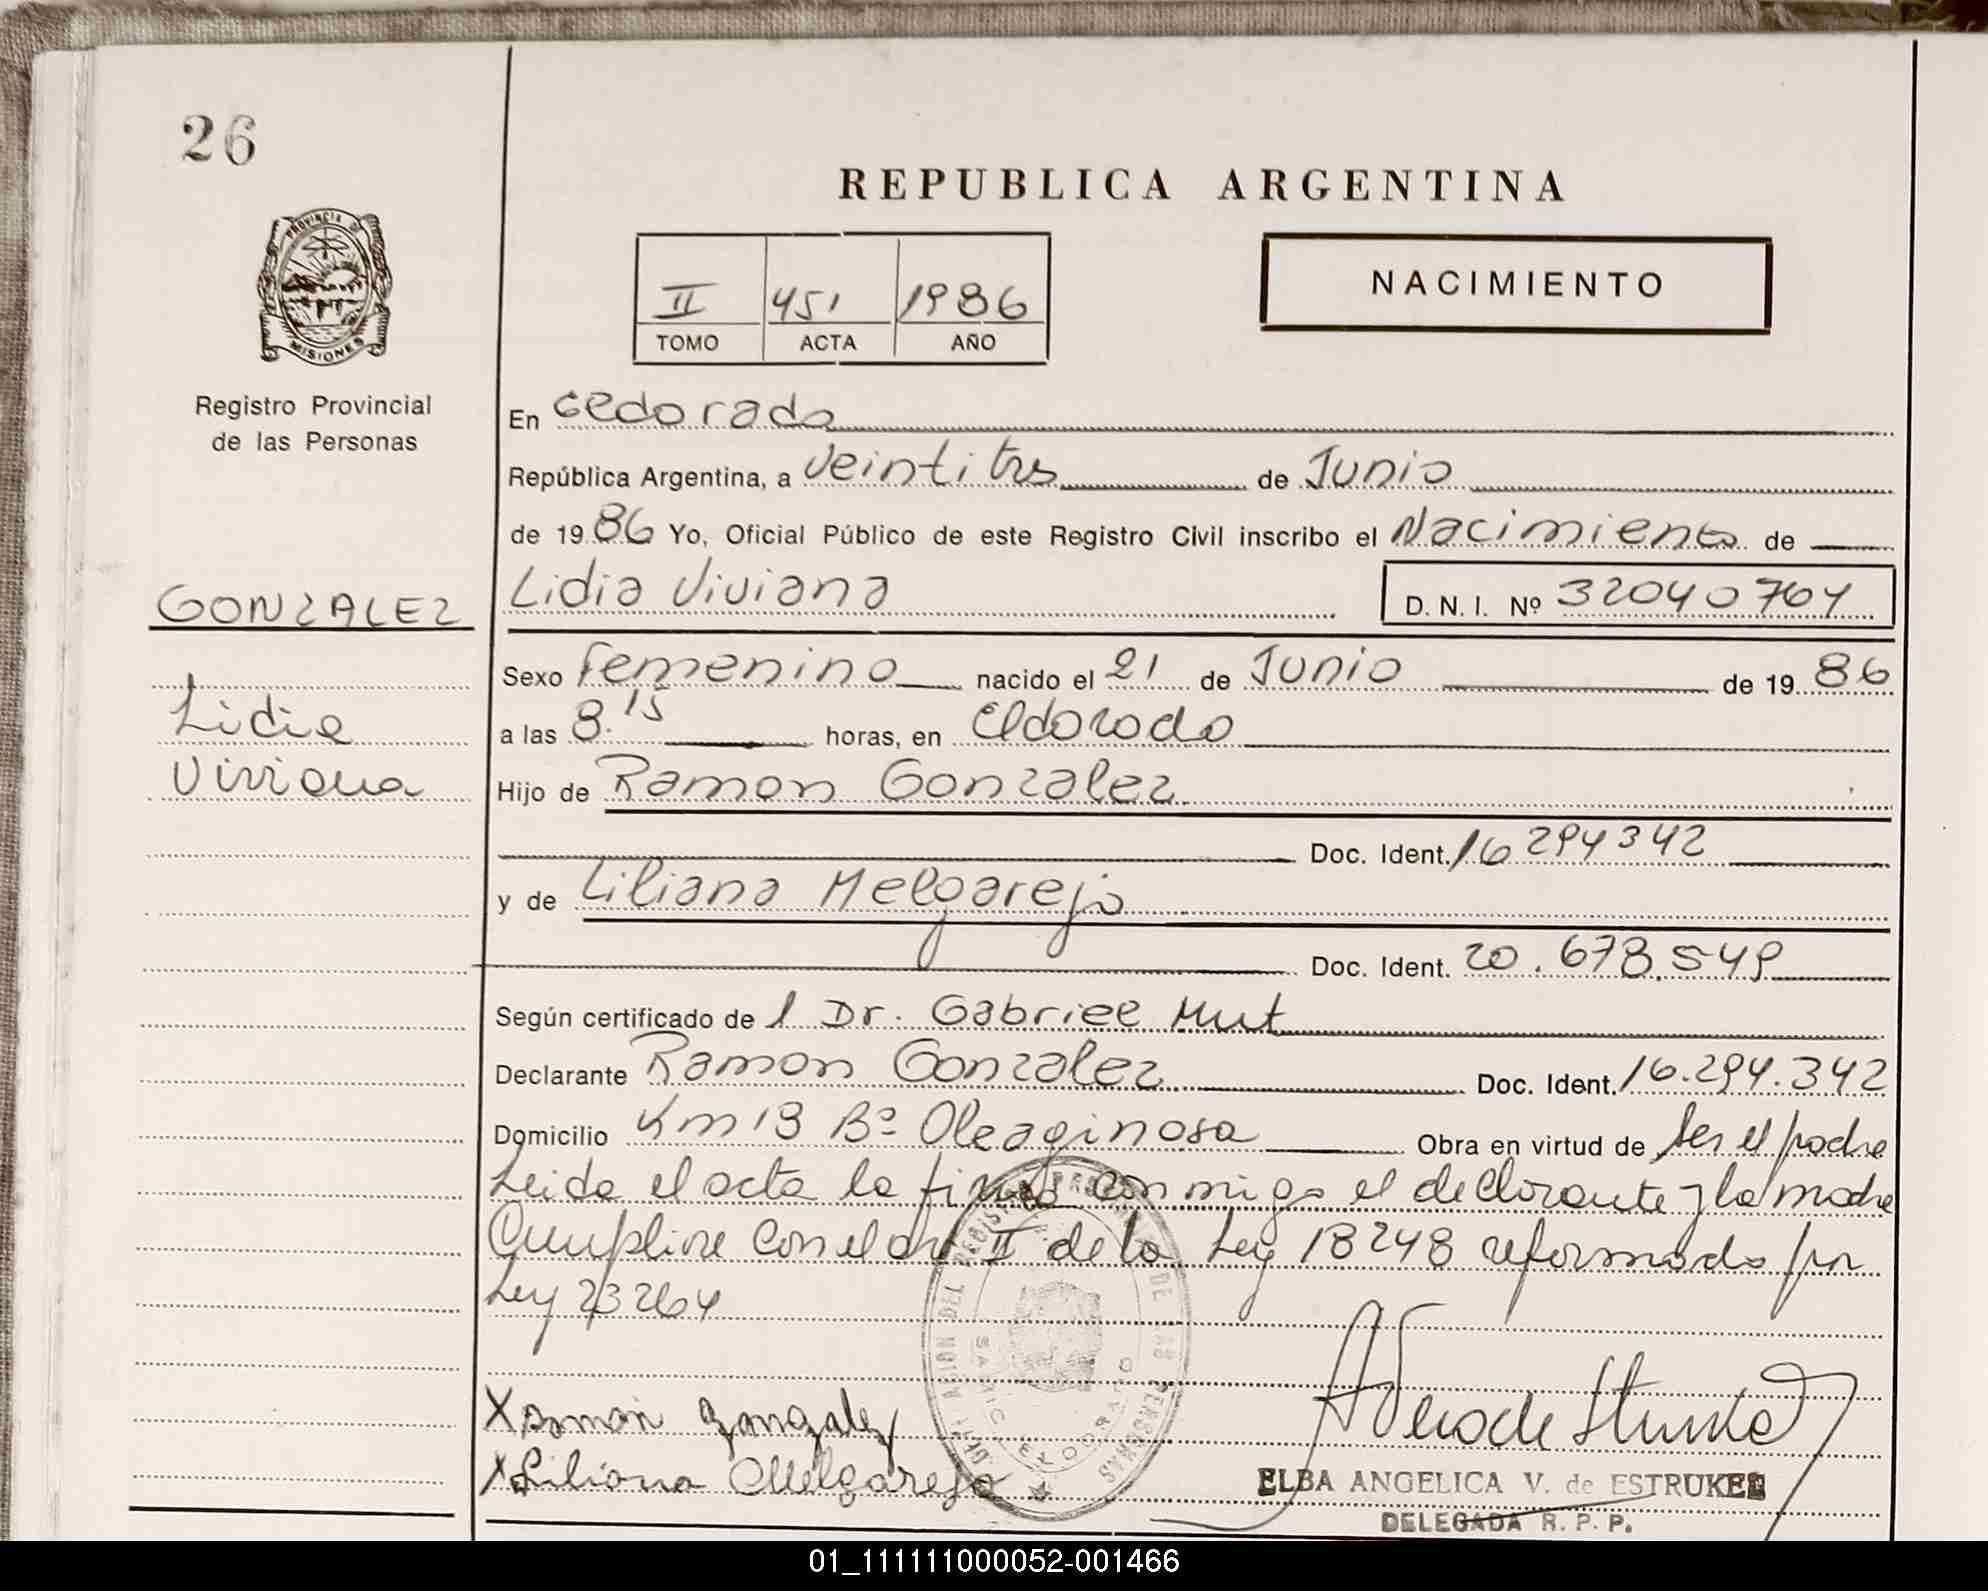 26
REPUBLICA ARGENTINA
PROVINCIA DE
MISIONES
Registro Provincial
de las Personas
II 451 1986
TOMO ACTA AÑO
NACIMIENTO
En Eldorado
República Argentina, a veintitres de Junio
de 1986 Yo, Oficial Público de este Registro Civil inscribo el Nacimiento de
GONZALEZ
Lidia Viviana
D. N. I. Nº 32040764
Lidia
Viviana
Sexo Femenino nacido el 21 de Junio de 1986
a las 8.15 horas, en Eldorado
Hijo de Ramon Gonzalez
Doc. Ident. 16294342
y de Liliana Melgarejo
Doc. Ident. 20.678.549
Según certificado del Dr. Gabriel Mut
Declarante Ramon Gonzalez Doc. Ident. 16.294.342
Domicilio Km 13 Bº Oleaginosa Obra en virtud de ser el padre
Leida el acta la firma conmigo el declarante y la madre
Cumplire con el art II de la Ley 18248 reformado por
Ley 23264
X Ramon Gonzalez
X Liliana Melgarejo
ELBA ANGELICA V. de ESTRUKEL
DELEGADA R. P. P.
01_111111000052-001466